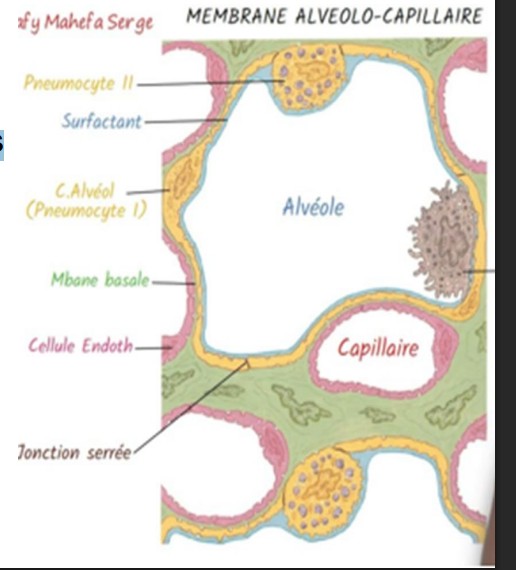 Mahefa Serge
MEMBRANE ALVEOLO-CAPILLAIRE
Pneumocyte II
Surfactant
C.Alvéol
(Pneumocyte I)
Alvéole
Mbane basale
Cellule Endoth
Capillaire
Jonction serrée